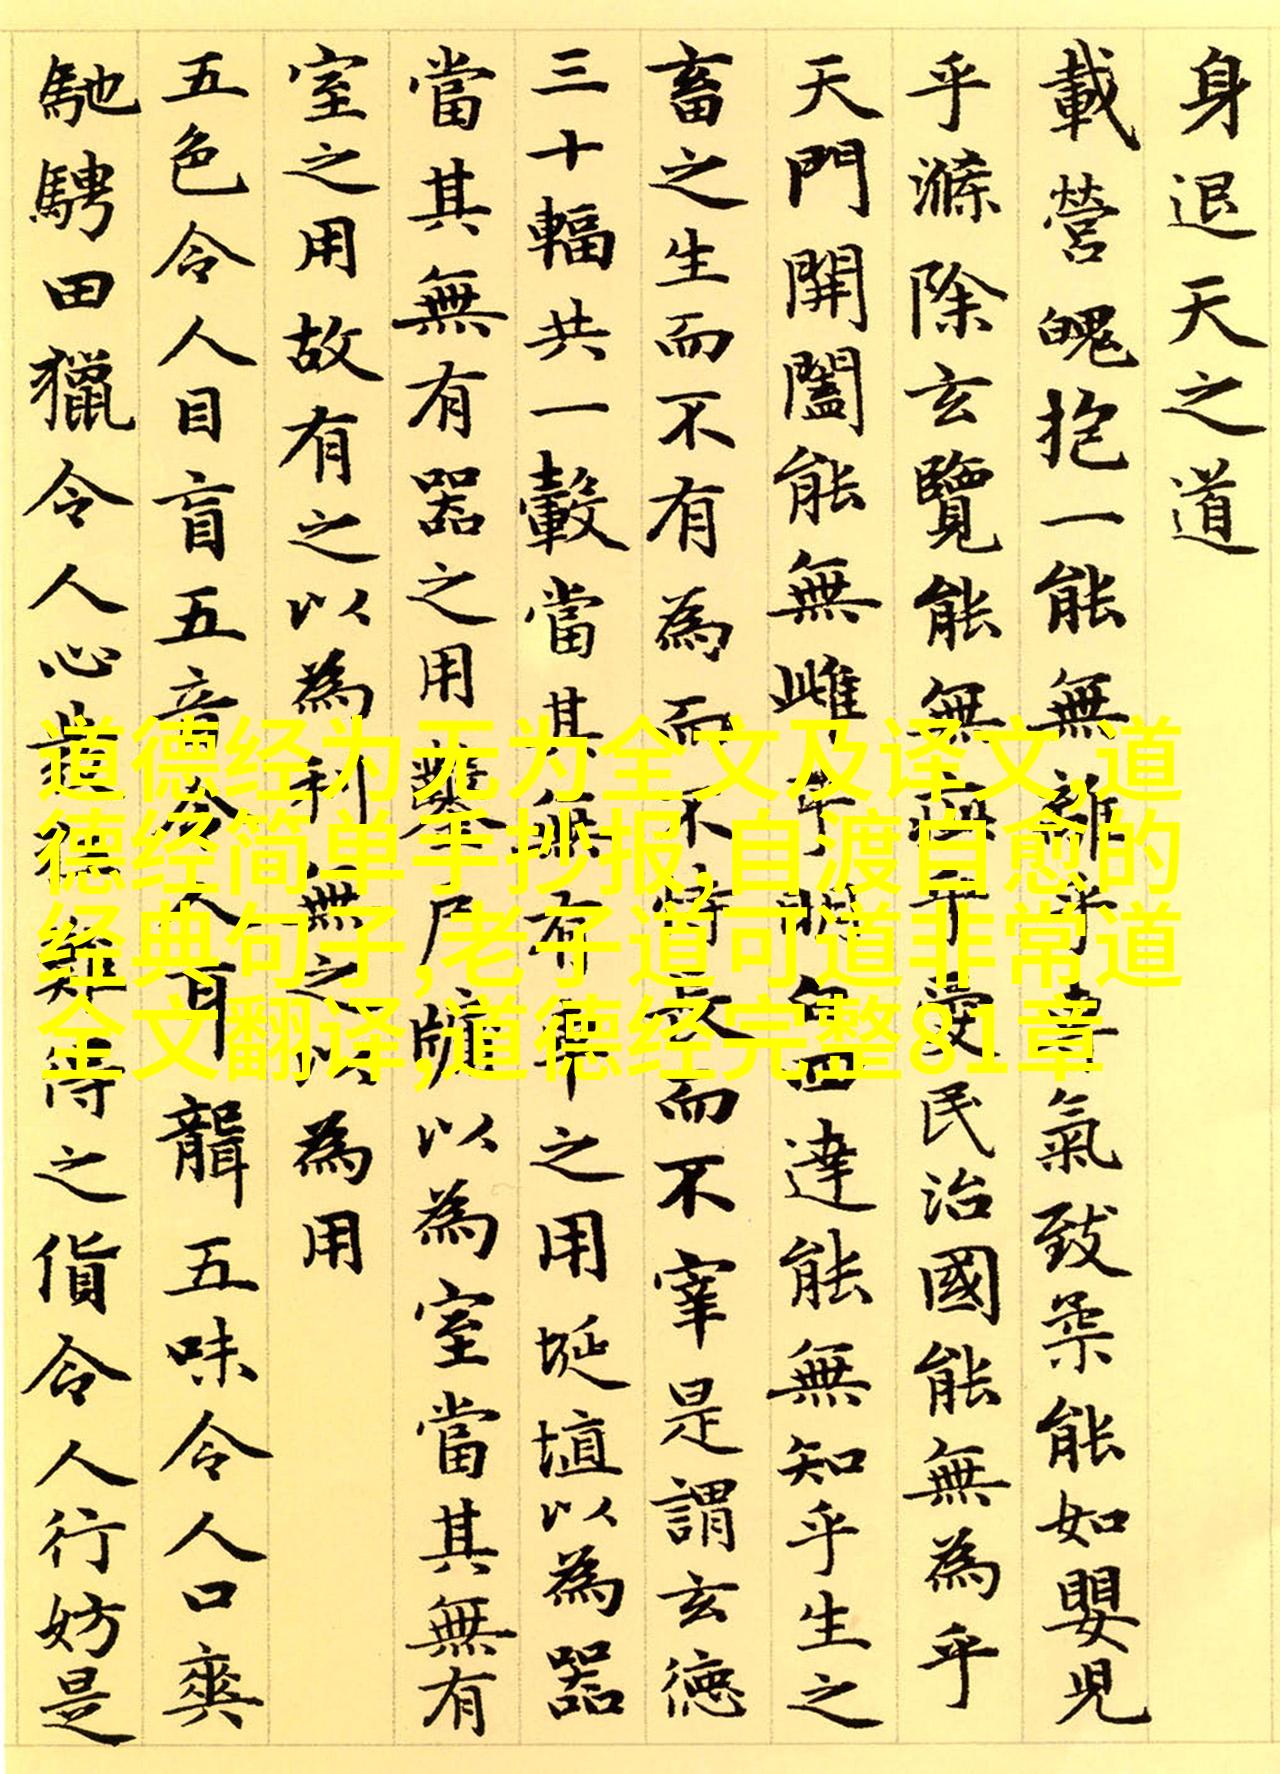 身退天之道
載營魄抱一能無離乎專氣致柔能如嬰兒
乎滌除玄覽能無疵乎愛民治國能無為乎
天門開闔能無雌乎明白四達能無知乎生之
畜之生而不有為而不恃長而不宰是謂玄德
三十輻共一轂當其無有車之用埏埴以為器
當其無有器之用鑿戶牖以為室當其無有
室之用故有之以為利無之以為用
五色令人目盲五音令人耳聾五味令人口爽
馳騁田獵令人心發狂難得之貨令人行妨是
道德经为无为全文及译文,道
德经简单手抄报,自渡自愈的
经典句子,老子道可道非常道
全文翻译,道德经完整81章